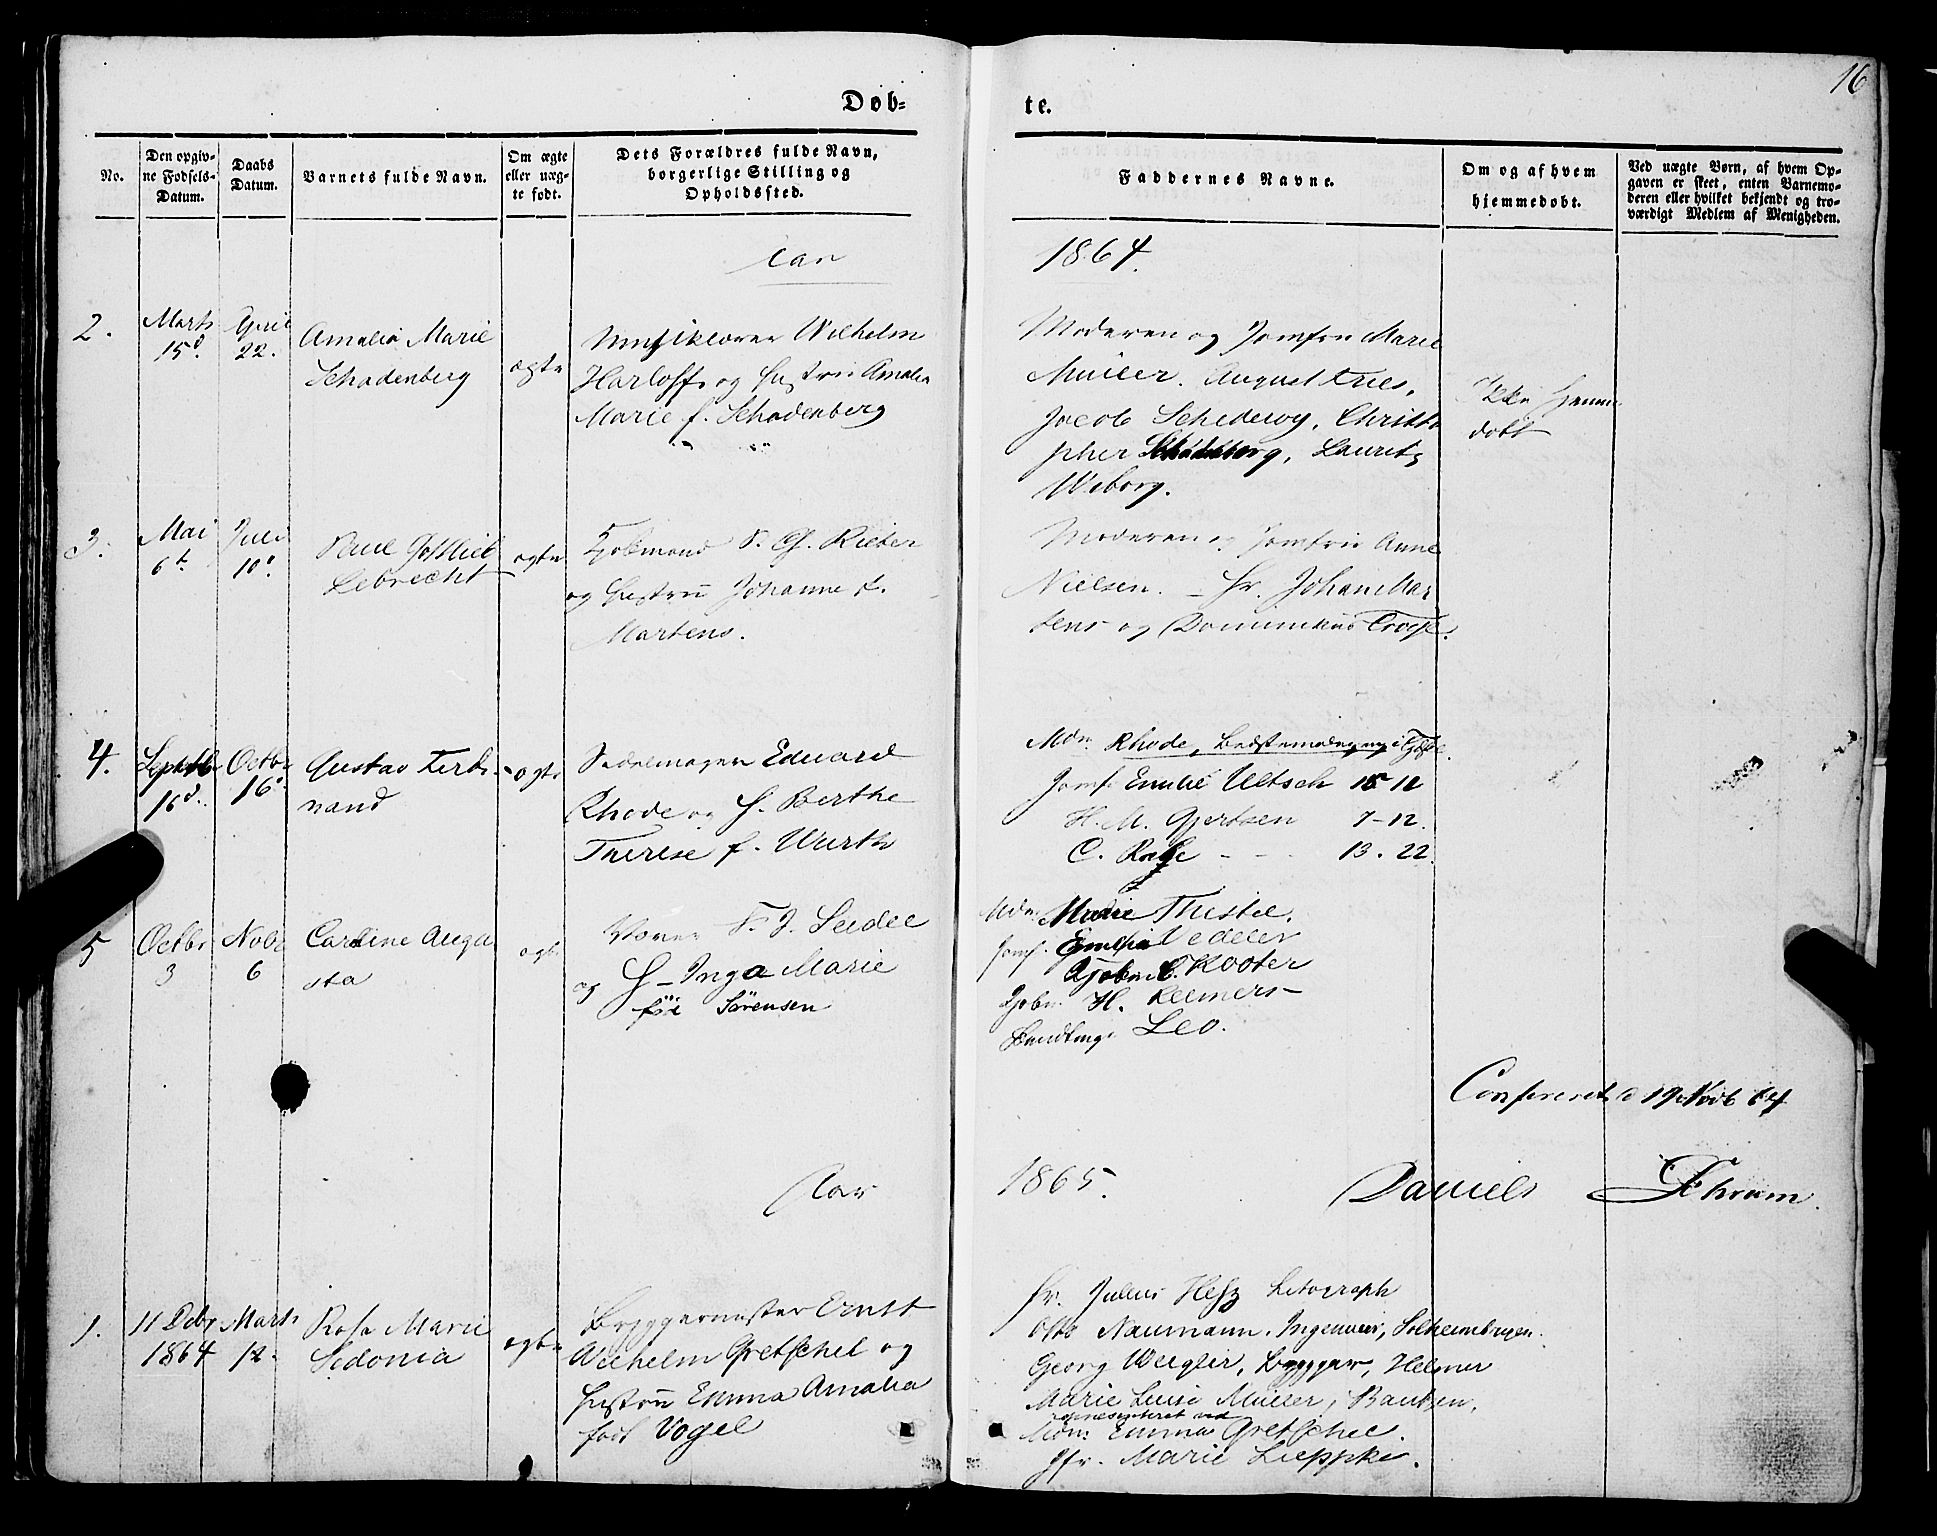 16
Døb=
te.
No.
Den opgiv-
ne Fødsels-
Datum.
Daabs
Datum.
Barnets fulde Navn.
Om ægte
eller uæg-
te født.
Dets Forældres fulde Navn,
borgerlige Stilling og
Opholdssted.
Faddernes Navne.
Om og af hvem
hjemmedøbt.
Ved uægte Børn, af hvem Op-
gaven er skeet, enten Barnemo-
deren eller hvilket bekjendt og tro-
værdigt Medlem af Menigheden.
Aar
1864.
2.
Marts
15d.
April
22.
Amalia Marie
Schadenberg
ægte
Musiklærer Wilhelm
Harloff og Hustru Amalia
Marie f. Schadenberg
Moderen og Jomfru Marie
Müller. August Fries,
Jacob Schedewy, Christo
pher Schadenberg, Lauritz
Wiborg.
Ikke hjemme
døbt
3.
Mai
6t
Juli
10d
Paul Gottlieb
Lebrecht
ægte
Kjøbmand F. G. Rieber
og Hustru Johanne f.
Martens.
Moderen og Jomfru Anne
Nielsen. – Hr. Johan Mar
tens og Dominikus
4.
Septbr
16d.
Octbr
16d
Gustav Ferdi-
nand
ægte
Sadelmager Eduard
Rhode og H. Berthe
Therese f. Wurth
Mdm. Rhode, Bedstemoder
Jomf. Emilie Ueltsch 15-12
H. M. Gjertsen 7-12.
C. 13. 22.
5
Octbr
3
Novbr
6
Caroline Augu
sta
ægte
F. J. Seidel
og H – Inga Marie
føt Sørensen
Mdm. Marie Thistel.
Jomf. Vedeler
Kjøbm. C. Kooter
Kjøbm. H. Reemers
Leo.
Confereret d 19 Novb 64
Daniels Schram
Aar
1865.
1.
11 Debr
1864
Marts
12.
Rosa Marie
Sidonia
ægte
Bryggermester Ernst
Wilhelm Gretschel og
Hustru Emma Amalia
født Vogel
Hr. Julius Hesz Litograph
Otto Naumann, Ingenieur, Solheimbryen.
Georg Weigler, Brygger, Helmer
Marie Luise Müller, Bautzen,
representeret ved
Mdm: Emma Gretschel.
Jfr. Marie Lieppke.